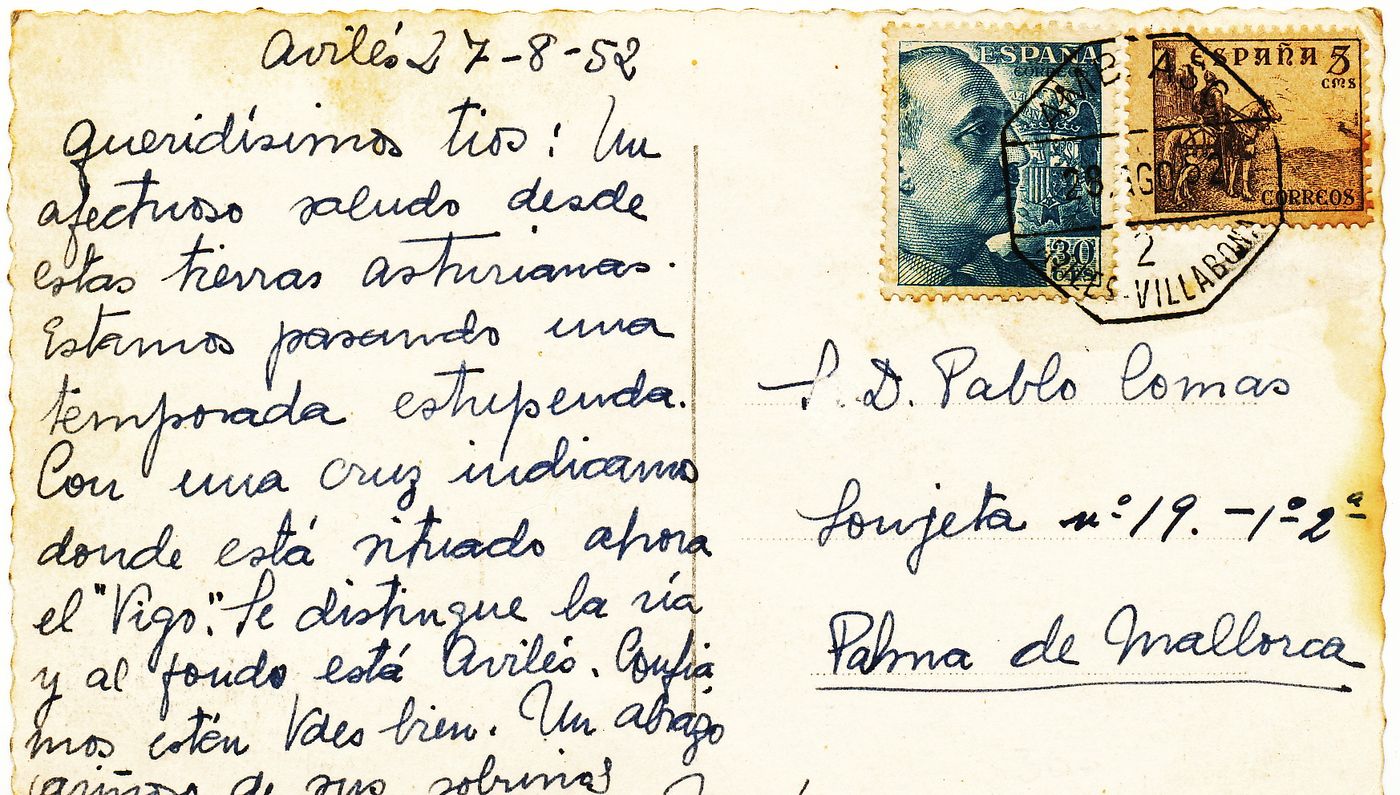 Avilés 27-8-52
queridísimos tios: Un
afectuoso saludo desde
estas tierras asturianas.
Estamos pasando una
temporada estupenda.
Con una cruz indicamos
donde está situado ahora
el "Vigo". Se distingue la ría
y al fondo está Avilés. Confia
mos estén Vdes bien. Un abrazo
cariñoso de sus sobrinos
ESPAÑA
CORREOS
30
CTS
ESPAÑA 5
CMS
CORREOS
AMB. ASC
28 AGO 52
2
AVILES-VILLABONA
S. D. Pablo Comas
Sonjeta nº 19. - 1º 2ª
Palma de Mallorca